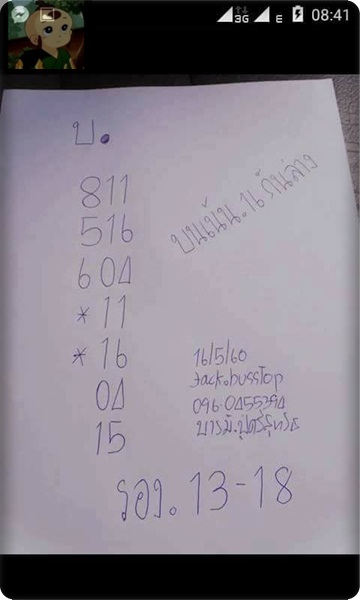 3G E 08:41
บ.
811
516
604
*11
*16
04
15
บนเน้น.16 กันล่าง
16/5/60
Jack.busstop
096-0455394
รอง.13-18